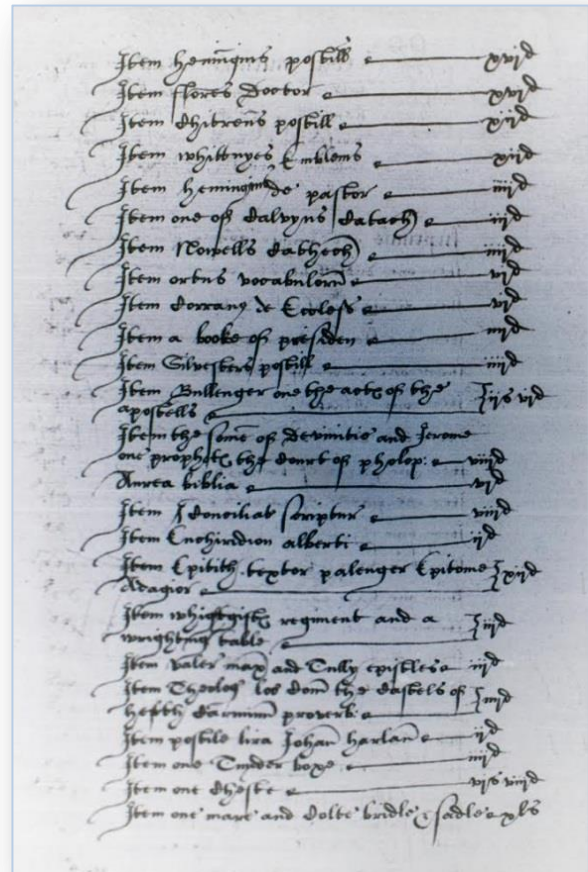 Item hemingius postill xvjd
Item flores Doctor xvjd
Item Chitreus postill xijd
Item whittnyes Emblems xijd
Item hemingius de pastor iiijd
Item one of Calvyns Catach iijd
Item Nowells Cathech iiijd
Item ortus vocabulorū vjd
Item Corrany de Eccless vjd
Item a booke of presiden iiijd
Item Silvesters postill iiijd
Item Bullenger one the acts of the
apostells ijs vjd
Item the some of devinitie and Jerome
one prophets the Court of pholop: viijd
Aurea biblia vjd
Item Conciliat scriptur viijd
Item Enchirdion alberti ijd
Item Epitith. textor palenger Epitome
Adagior xijd
Item regiment and a
wrighting table iijd
Item Valer max and Tully epistles iijd
Item Theolog los Com the Castels of
helth Carminū proverb: iiijd
Item postile lira Johan harlan ijd
Item one boxe iiijd
Item one Cheste vjs viijd
Item one mare and Colte bridle & sadle xls